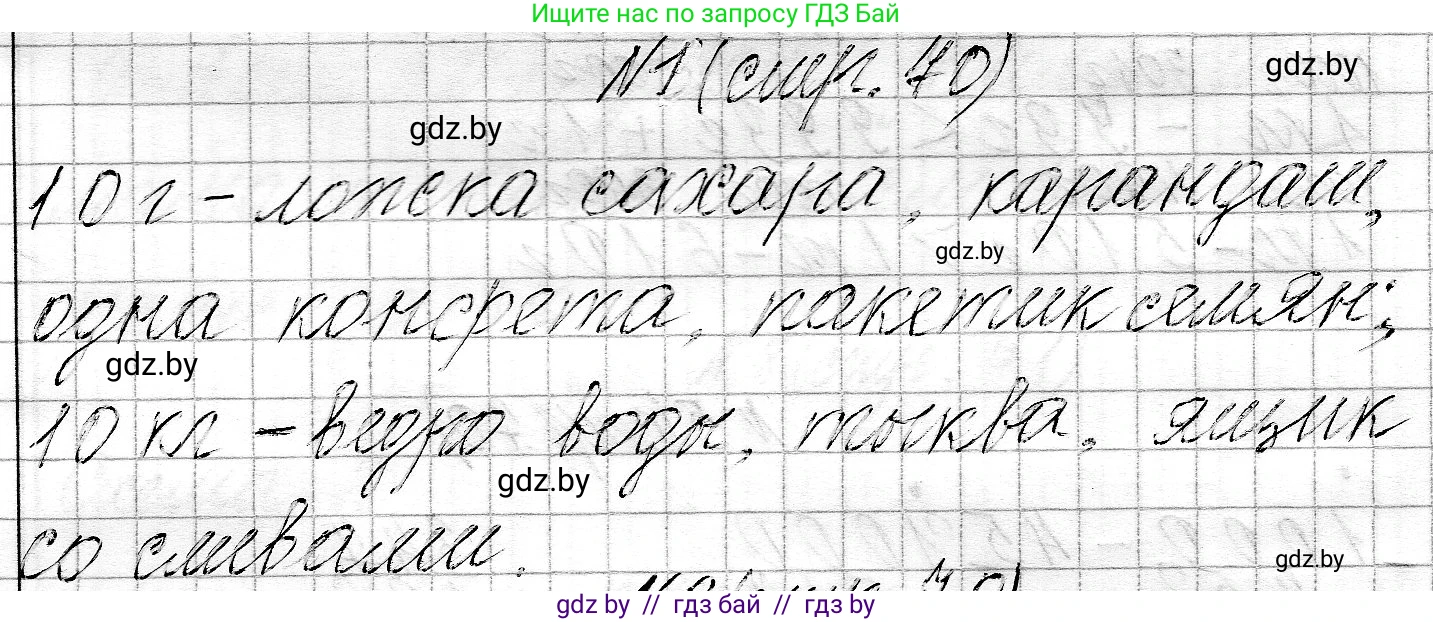 Ищите нас по запросу ГДЗ Бай
№1 (стр. 40)
gdz.by
gdz.by
10 г - ложка сахара, карандаш,
gdz.by
одна конфета, пакетик семян;
gdz.by
10 кг - ведро воды, тыква, ящик
gdz.by
со сливами.
gdz.by
gdz by // гдз бай // гдз by